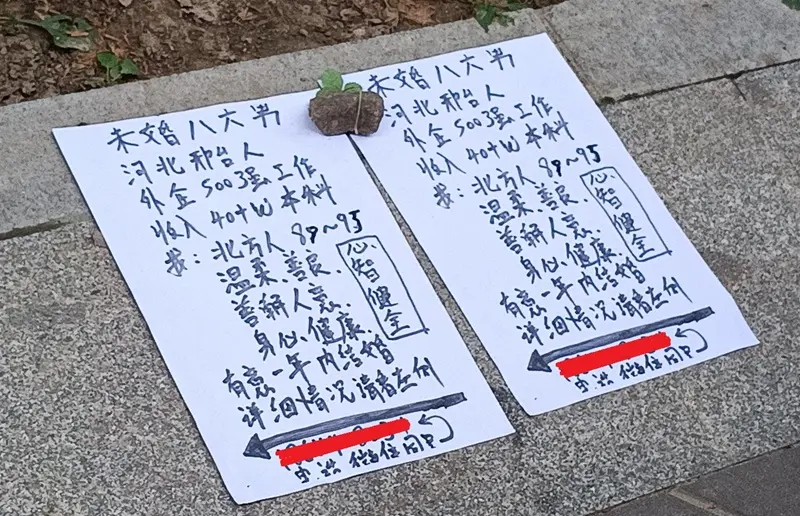 未婚八六男
河北邢台人
外企500强工作
收入40+W本科
找：北方人89~95
温柔、善良、
善解人意、
身心健康
心智健全
有意一年内结婚
详细情况请看左侧
微信同号
未婚八六男
河北邢台人
外企500强工作
收入40+W本科
找：北方人89~95
温柔、善良、
善解人意、
身心健康
心智健全
有意一年内结婚
详细情况请看左侧
微信同号